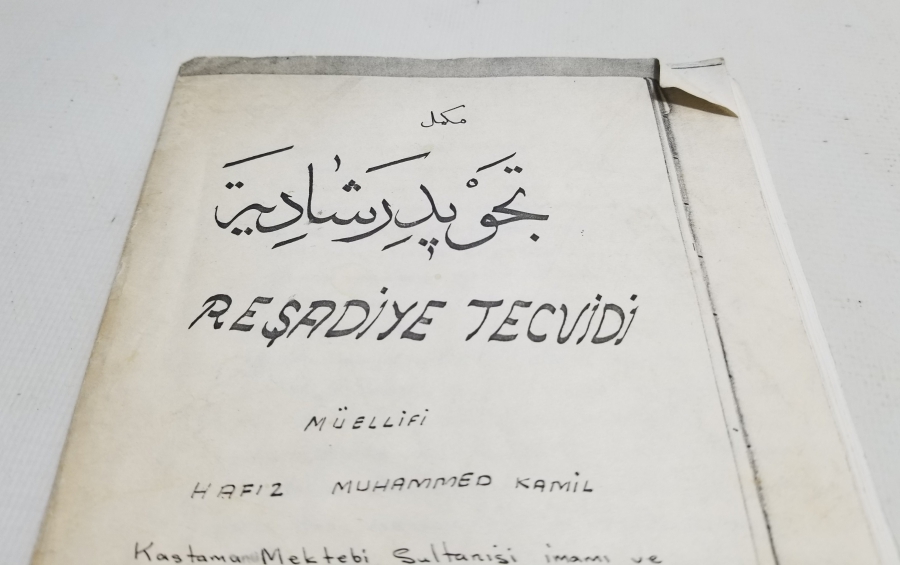 مكمل
تجويد رشادية
REŞADİYE TECVİDİ
MÜELLİFİ
HAFIZ MUHAMMED KAMİL
Kastamanu Mektebi Sultanisi imamı ve